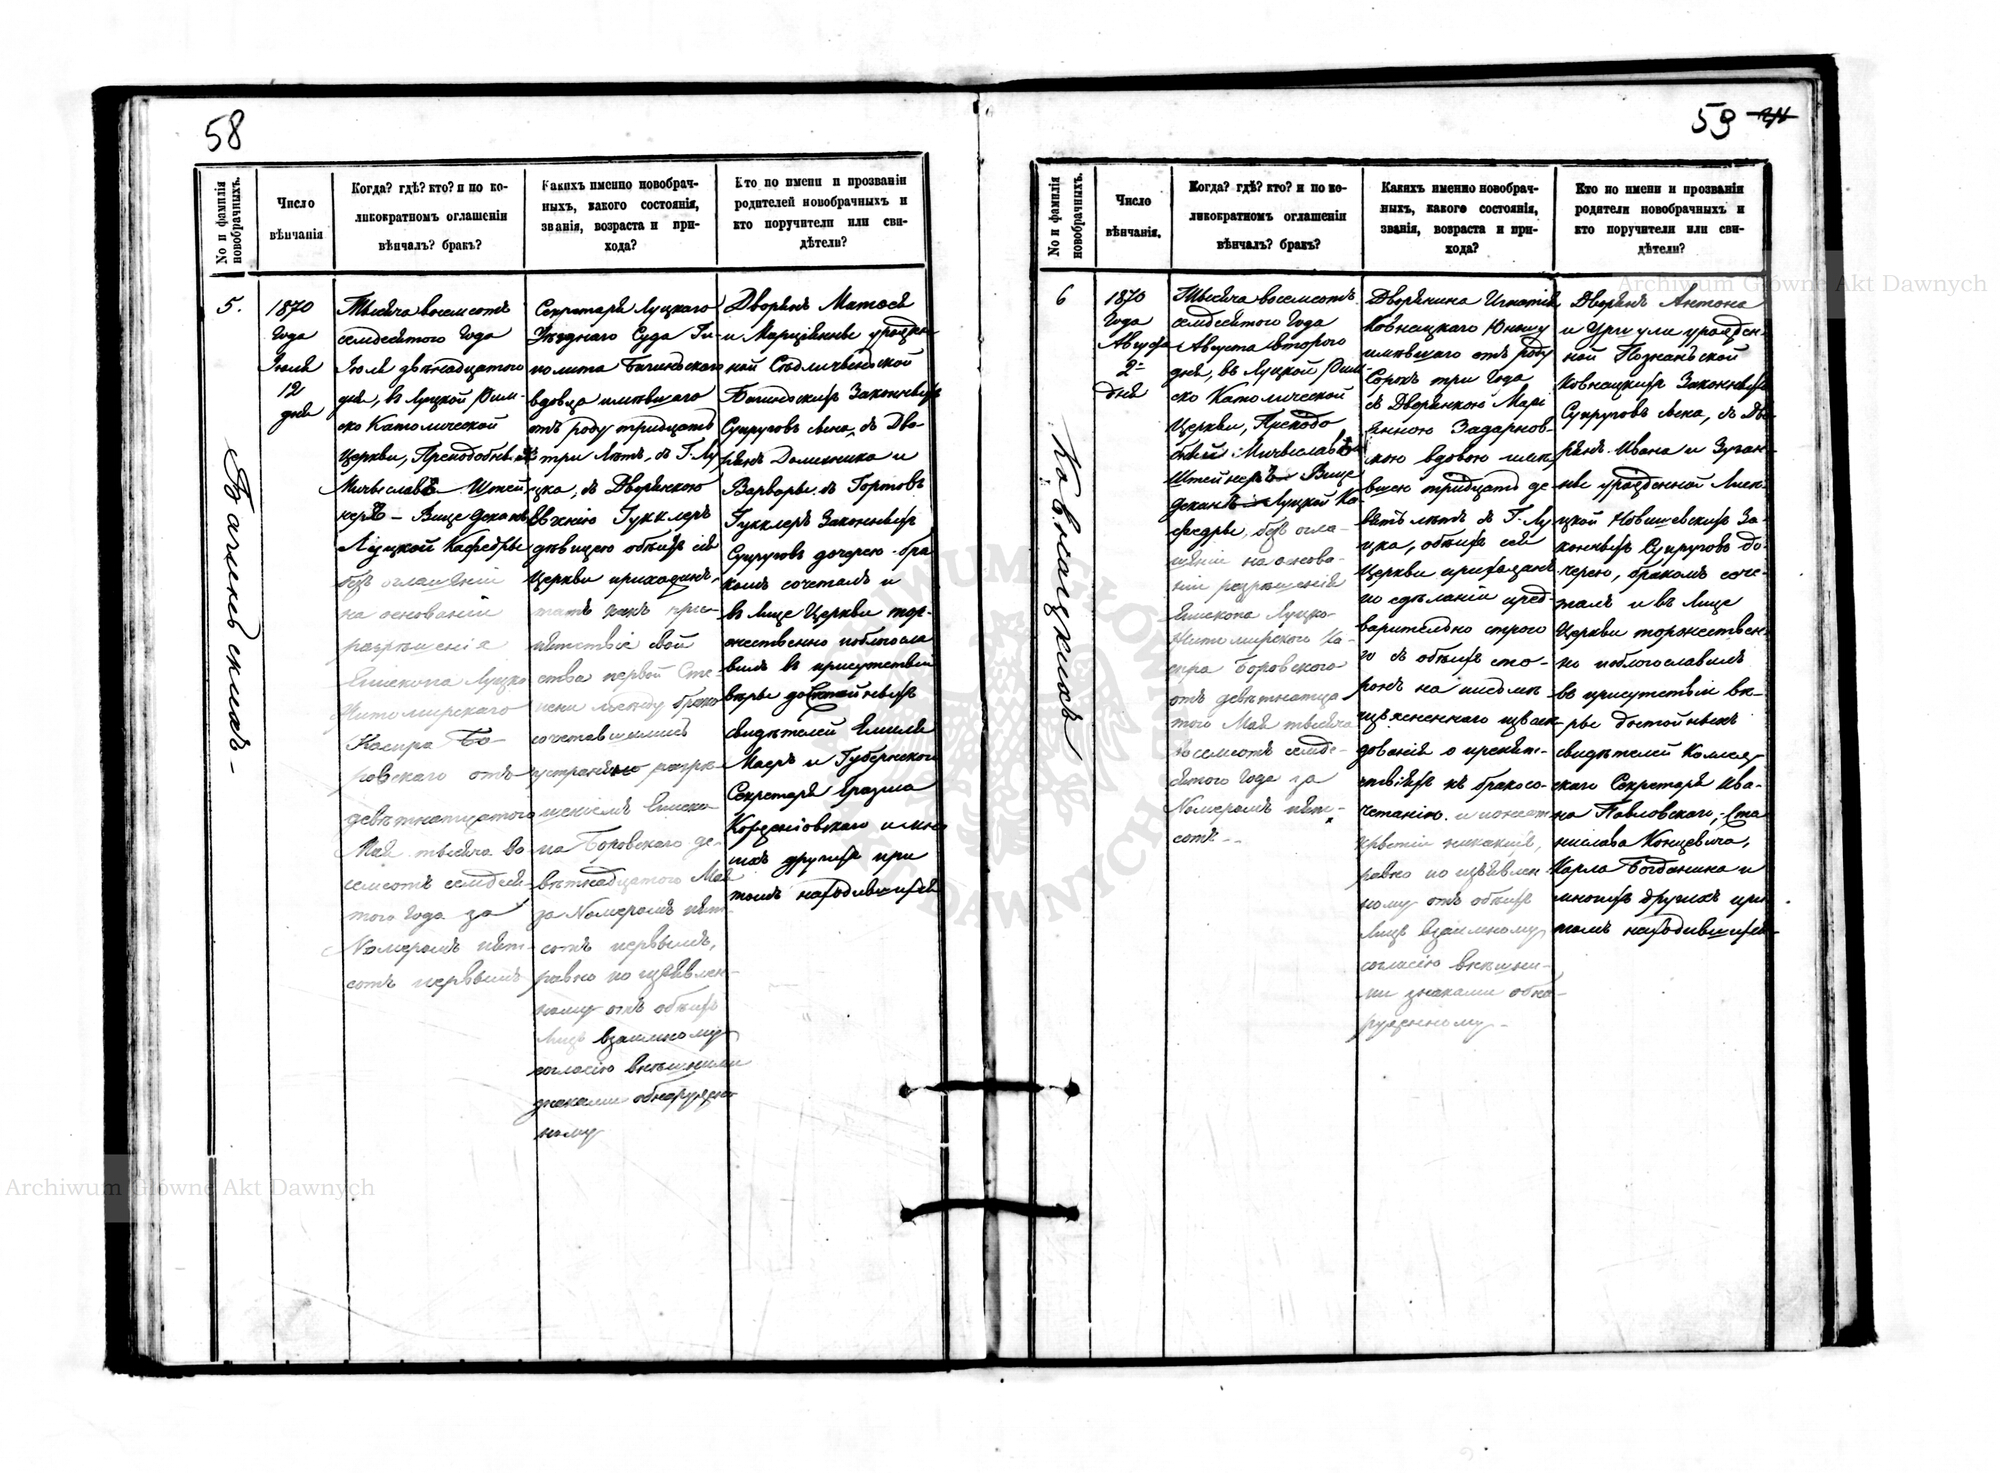 58
No и фамилія новобрачныхъ.
Число вѣнчанія
Когда? гдѣ? кто? и по ко-
ликократномъ оглашеніи
вѣнчалъ? бракъ?
Какихъ именно новобрач-
ныхъ, какого состоянія,
званія, возраста и при-
хода?
Кто по имени и прозванію
родителей новобрачныхъ и
кто поручители или сви-
дѣтели?
5.
Багиньскихъ
1870
Года
Іюля
12
дня
Тысяча восемсотъ
семдесятого Года
Іюля двѣнадцатого
дня, въ Луцкой Рим-
ско Католической
Церкви, Преподобный
Мичыславъ Штей
неръ – Вице деканъ
Луцкой Кафедры
безъ оглашеній
на основаніи
разрѣшенія
Епископа Луцко
Житомирскаго
Каспра Бо-
ровскаго отъ
девятнатцатого
Мая тысяча во
семсотъ семдеся-
того Года за
Номеромъ пят-
сотъ первымъ
Секретаря Луцкого
Уѣзднаго Суда Ги-
полита Багиньского
вдовца имѣвшаго
отъ роду тридцать
три лѣтъ, въ Г. Лу
цка, съ Дворянкою
Евгенію Гукклеръ
дѣвицею обѣихъ сей
Церкви приходянъ,
препятствіе свой
ства первой Сте-
пени между брако
сочетавшимись
устранено разрѣ-
шеніемъ Еписко-
па Боровскаго де-
вятнадцатого Мая
за Номеромъ пят-
сотъ первымъ,
равно по изъявлен-
ному отъ обѣихъ
лицъ взаимному
согласію внѣшними
знаками обнаружен
ному
Дворянъ Матѳея
и Марціянны урожден-
ной
Багиньскихъ Законныхъ
Супруговъ сына, съ Дво-
рянъ Доминика и
Варвары съ Гортовъ
Гукклеръ Законныхъ
Супруговъ дочерею бра
комъ сочеталъ и
въ лице Церкви тор-
жественно поблагосла
вилъ въ присутствіи
вѣры достойныхъ
свидѣтелей Емиля
Маеръ и Губернского
Секретаря Еразма
и мно
гихъ другихъ при
томъ находившихся
59
No и фамилія новобрачныхъ.
Число вѣнчанія.
Когда? гдѣ? кто? и по ко-
ликократномъ оглашеніи
вѣнчалъ? бракъ?
Какихъ именно новобрач-
ныхъ, какого состоянія,
званія, возраста и при-
хода?
Кто по имени и прозванію
родители новобрачныхъ и
кто поручители или сви-
дѣтели?
6
Ковнацкихъ
1870
Года
Августа
2-
дня
Тысяча восемсотъ
семдесятого Года
Августа второго
дня, въ Луцкой Рим-
ско Католической
Церкви, Преподо
бный Мичыславъ
Штейнеръ Вице
деканъ Луцкой Ка-
федры, безъ огла-
шеній на основа-
ніи разрѣшенія
Епископа Луцко-
Житомирского Ка-
спра Боровского
отъ девятнатца
того Мая тысяча
восемсотъ семде-
сятого Года за
Номеромъ пят-
сотъ –
Дворянина Игнатія
Ковнацкого Юношу
имѣвшаго отъ роду
Сорокъ три Года
съ Дворянкою Марі
янною Задарнов-
скою вдовою имѣ
вшею тридцать де
вять лѣтъ въ Г. Лу
цка, обѣихъ сей
Церкви приходянъ
по сдѣланіи пред-
варительно строго
го съ обѣихъ сто-
ронъ на письмѣ
изъясненнаго изслѣ
дованія о препят-
ствіяхъ къ бракосо-
четанію
никакихъ,
равно по изъявлен
ному отъ обѣихъ
Лицъ взаимному
согласію внѣшни-
ми знаками обна-
руженному –
Дворянъ Антона
и Уршули урожден-
ной Познаньской
Ковнацкихъ Законныхъ
Супруговъ сына, съ Дво
рянъ Ивана и Зузан-
ны урожденной
Новишевскихъ За-
конныхъ Супруговъ до-
черею, бракомъ соче-
талъ и въ Лице
Церкви торжествен-
но поблагославилъ
въ присутствіи вѣ-
ры достойныхъ
свидѣтелей Коллеж
скаго Секретаря Ива-
на Павловского, Ста
нислава Концевича,
Карла Богданика и
многихъ другихъ при
томъ находившихся
Archiwum Główne Akt Dawnych
Archiwum Główne Akt Dawnych
ARCHIWUM GŁÓWNE AKT DAWNYCH